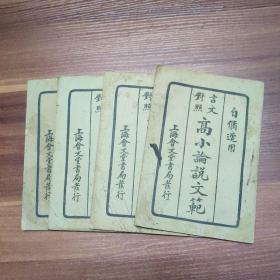 自脩適用
言文對照
高小論說文範
上海會文堂書局發行
對照
上海會文堂書局發行
對照
上海會文堂書局發行
對照
上海會文堂書局發行